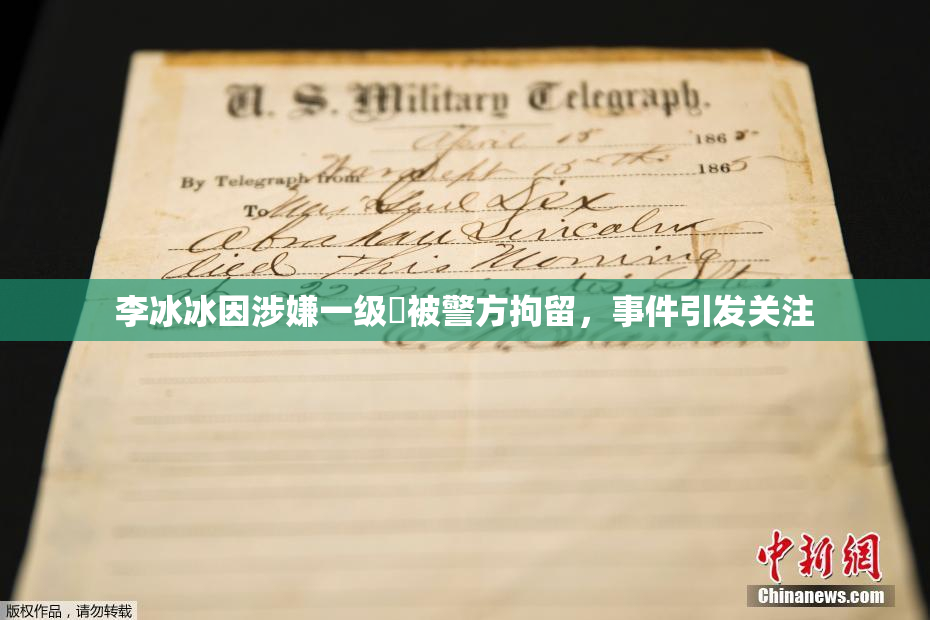 U. S. Military Telegraph.
April 15 1865
By Telegraph from War Dept 15th 1865
To Maj Genl Dix
Abraham Lincoln
died This Morning
at 22 minutes after
李冰冰因涉嫌一级被警方拘留，事件引发关注
E. M. Stanton
中新网
Chinanews.com
版权作品，请勿转载